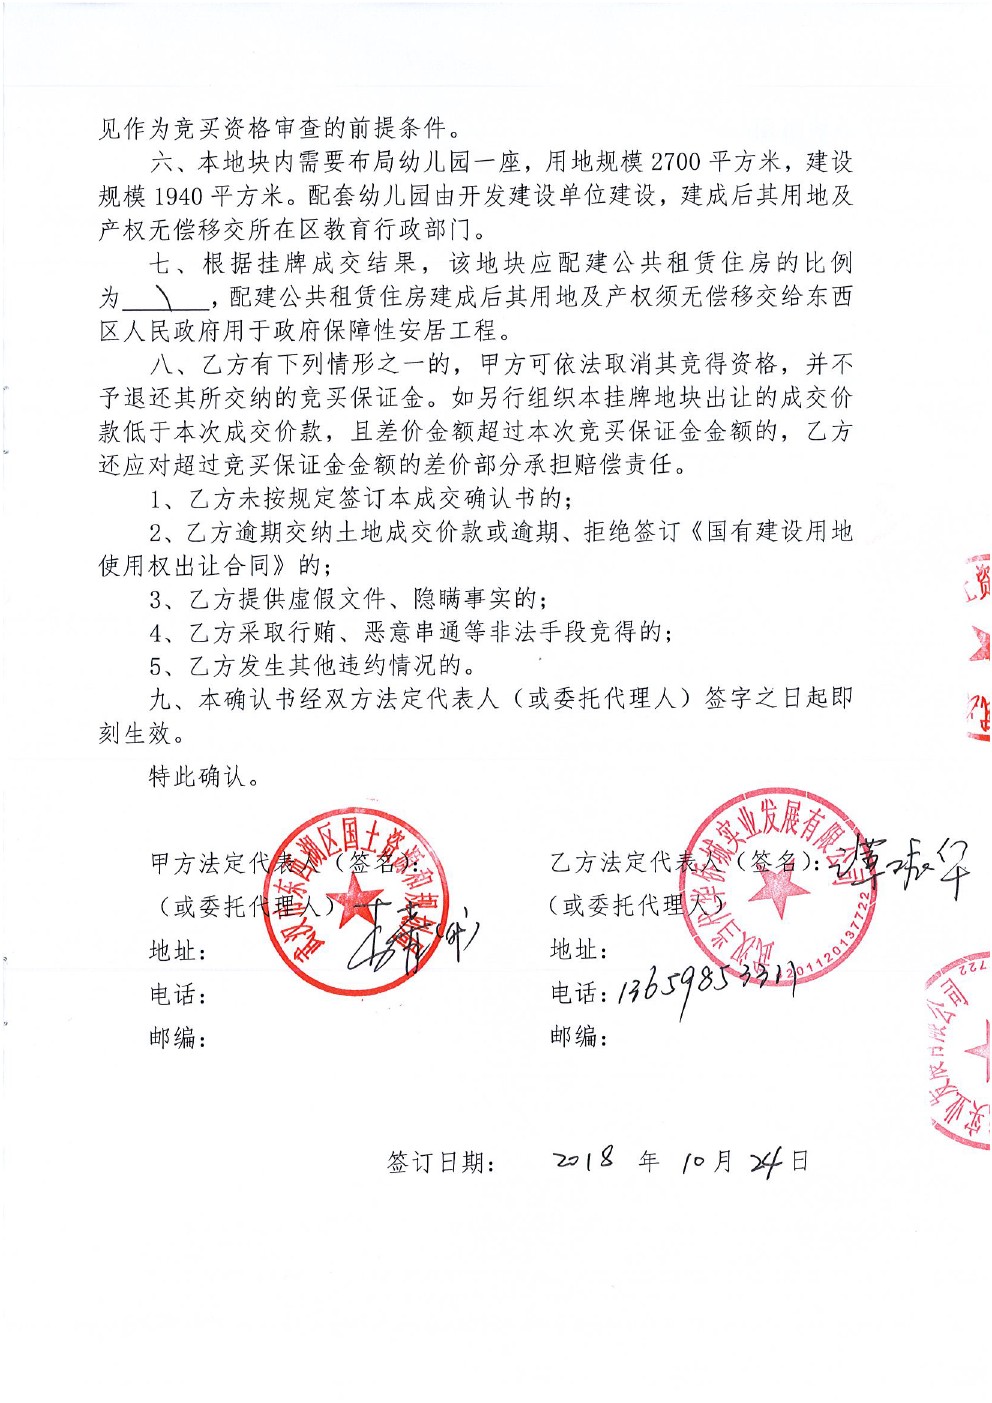 见作为竞买资格审查的前提条件。
六、本地块内需要布局幼儿园一座，用地规模 2700 平方米，建设
规模 1940 平方米。配套幼儿园由开发建设单位建设，建成后其用地及
产权无偿移交所在区教育行政部门。
七、根据挂牌成交结果，该地块应配建公共租赁住房的比例
为 \ ，配建公共租赁住房建成后其用地及产权须无偿移交给东西
区人民政府用于政府保障性安居工程。
八、乙方有下列情形之一的，甲方可依法取消其竞得资格，并不
予退还其所交纳的竞买保证金。如另行组织本挂牌地块出让的成交价
款低于本次成交价款，且差价金额超过本次竞买保证金金额的，乙方
还应对超过竞买保证金金额的差价部分承担赔偿责任。
1、乙方未按规定签订本成交确认书的；
2、乙方逾期交纳土地成交价款或逾期、拒绝签订《国有建设用地
使用权出让合同》的；
3、乙方提供虚假文件、隐瞒事实的；
4、乙方采取行贿、恶意串通等非法手段竞得的；
5、乙方发生其他违约情况的。
九、本确认书经双方法定代表人（或委托代理人）签字之日起即
刻生效。
特此确认。
武汉市东西湖区国土资源和规划局
甲方法定代表人（签名）：
（或委托代理人）
地址：
电话：
邮编：
实业发展有限公司
4201120137722
乙方法定代表人（签名）：
（或委托代理人）
地址：
电话：13659853311
邮编：
实业发展有限公司
722
签订日期： 2018 年 10 月 24 日